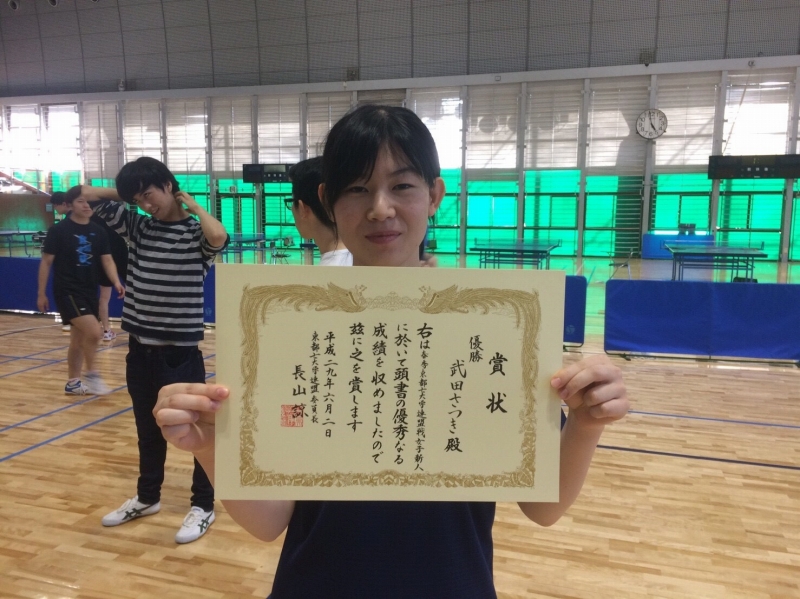 賞状
優勝
武田さつき殿
右は春季東都工大学連盟戦女子新人
に於いて頭書の優秀なる
成績を収めましたので
茲に之を賞します
平成二九年六月二日
東都工大学連盟委員長
長山諒